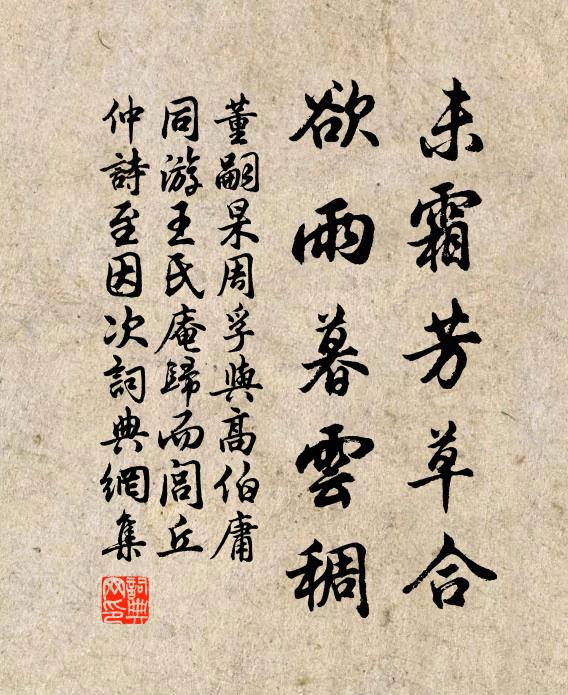 未霜芳草合
欲雨暮雲稠
董嗣杲周孚與高伯庸
同游王氏庵歸而閭丘
仲詩至因次詞典網集
詞典網印